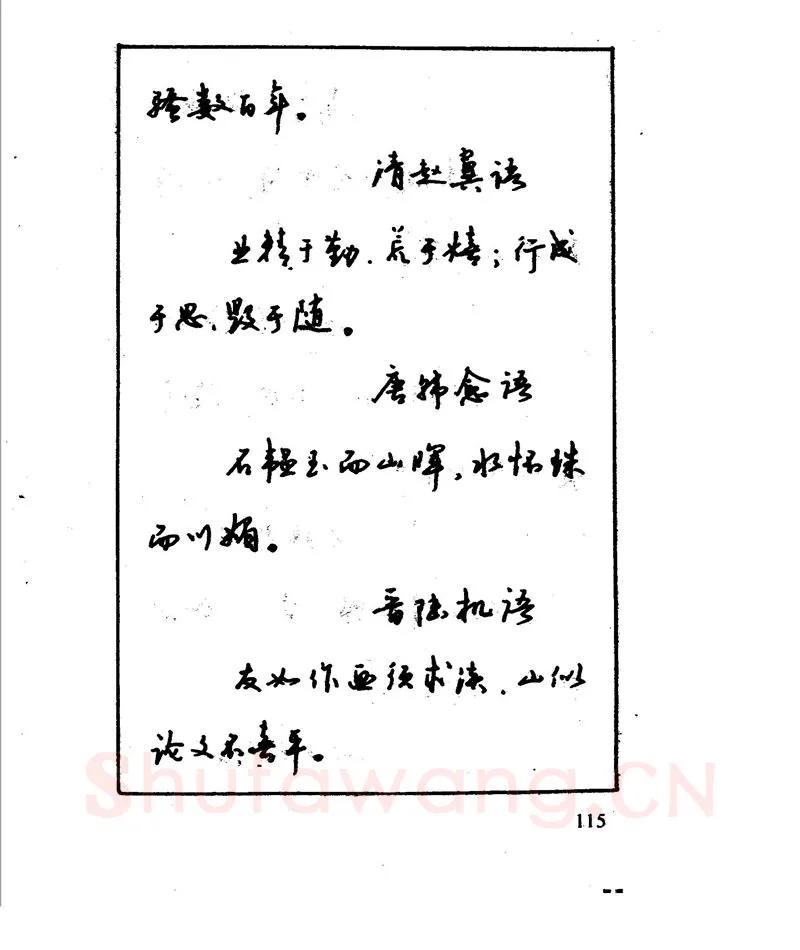 骚数百年。
清赵翼语
业精于勤,荒于嬉;行成
于思,毁于随。
唐韩愈语
石韫玉而山晖,水怀珠
而川媚。
晋陆机语
友如作画须求淡,山似
论文不喜平。
Shufawang.CN
115